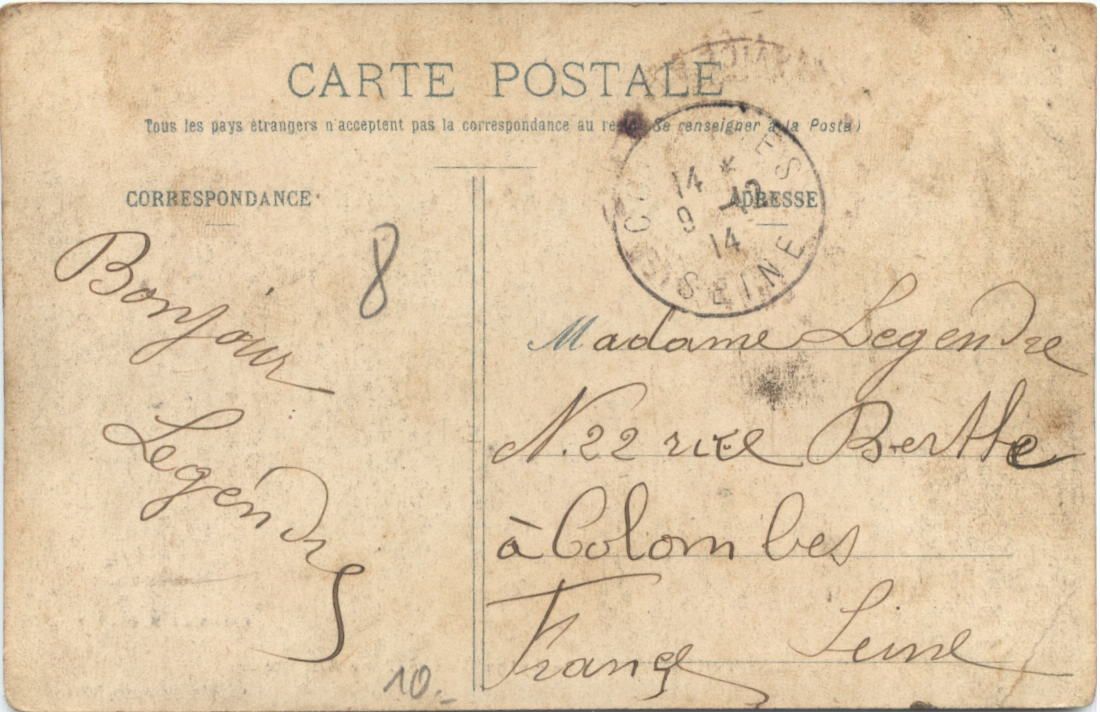 CARTE POSTALE
Tous les pays étrangers n'acceptent pas la correspondance au Se renseigner à la Poste)
CORRESPONDANCE
ADRESSE
14 * 12
9 14
SEINE
8
Bonjour
Legendre
Madame Legendre
N. 22 rue Berthe
à Colombes
France Seine
10.-